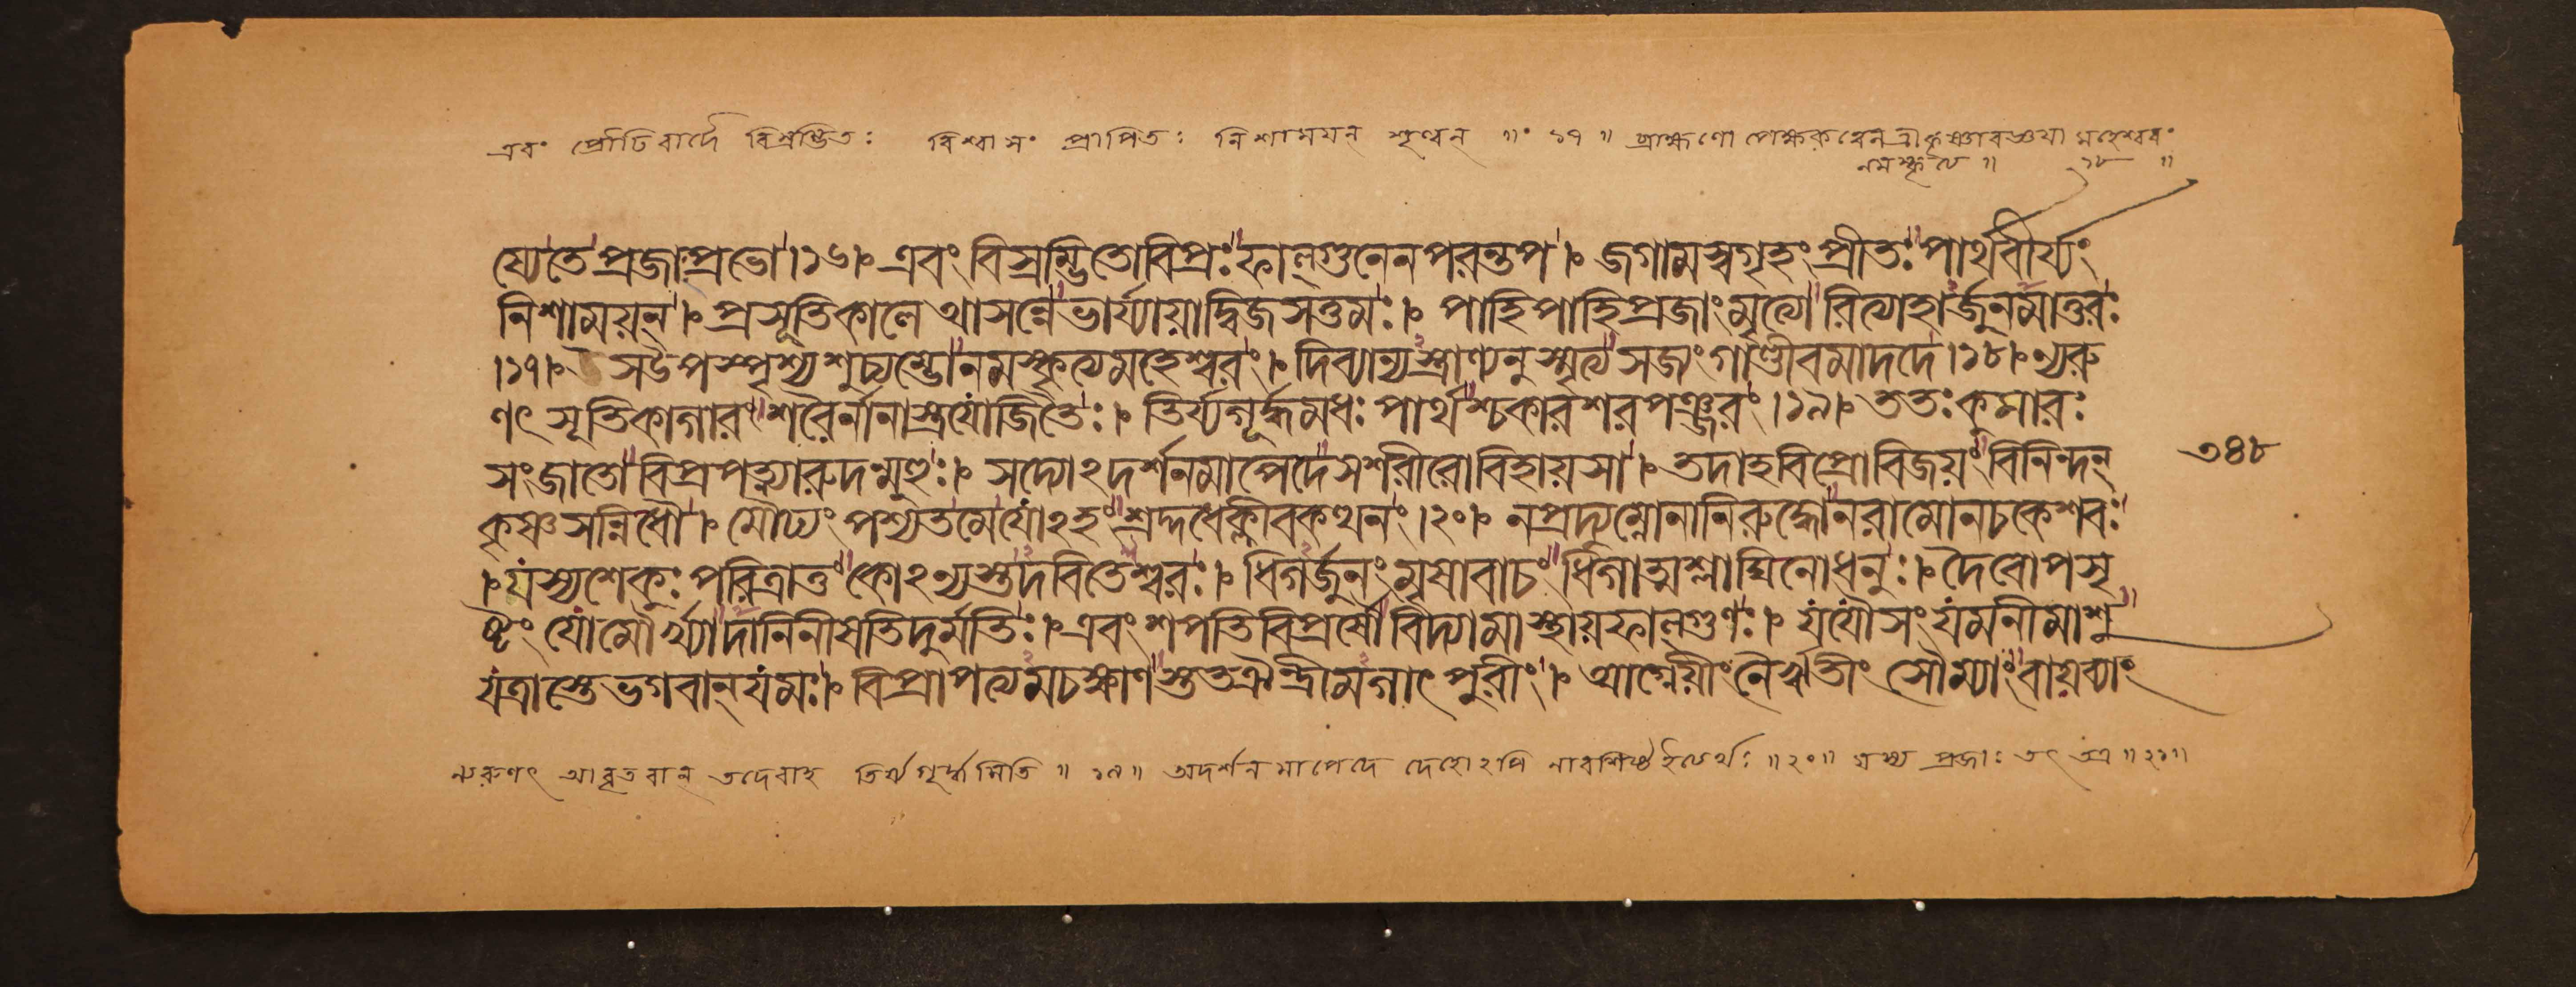 এবং প্রৌঢিবাদৈ বিশ্রম্ভিতঃ বিশ্বাসং প্রাপিতঃ নিশাময়ন্ শৃণ্বন্ ॥ ১৭ ॥ মহেশ্বরং
নমস্কৃত্য ॥ ১৮ ॥
ষ্যেতে প্রজাং প্রভো।১৬। এবং বিস্রম্ভিতোবিপ্রঃ ফাল্গুনেনপরন্তপ। জগামস্বগৃহং প্রীতঃ পার্থবীর্য্যং
নিশাময়ন্। প্রসূতিকালে আসন্নে ভার্য্যায়াদ্বিজসত্তমঃ। পাহিপাহিপ্রজাংমৃত্যোরিত্যাহার্জুনমাতুরঃ
।১৭। সউপস্পৃশ্যশুচ্যম্ভোনমস্কৃত্যমহেশ্বরং। দিব্যান্যস্ত্রাণ্যনুস্মৃত্যসজ্যংগাণ্ডীবমাদদে।১৮। ন্যরু
ণৎ সূতিকাগারং শরৈর্নানাস্ত্রযোজিতৈঃ। তির্য্যগূর্দ্ধমধঃ পার্থশ্চকারশরপঞ্জরং।১৯। ততঃকুমারঃ
সংজাতো বিপ্রপত্ন্যারুদন্মুহুঃ। সদ্যোঽদর্শনমাপেদেসশরীরোবিহায়সা। তদাহবিপ্রোবিজয়ং বিনিন্দন্ ৩৪৮
কৃষ্ণসন্নিধৌ। মৌঢ্যং পশ্যতমেযোঽহং শ্রদ্দধেক্লীবকত্থনং।২০। নপ্রদ্যুম্নোনানিরুদ্ধোনরামোনচকেশবঃ
। যস্যশেকুঃ পরিত্রাতুং কোঽন্যস্তদবিতেশ্বরঃ। ধিগর্জুনংমৃষাবাচং ধিগাত্মশ্লাঘিনোধনুঃ। দৈবোপসৃ
ষ্টং যোমৌর্খ্যাদানিনীষতিদুর্মতিঃ। এবং শপতিবিপ্রর্ষৌবিদ্যামাস্থায়ফাল্গুণঃ। যযৌসংযমনীমাশু
যত্রাস্তেভগবান্যমঃ। বিপ্রাপত্যমচক্ষাণস্ততঐন্দ্রীমগাৎপুরীং। আগ্নেয়ীংনৈর্ঋতীং সৌম্যাং বায়ব্যাং
ন্যরুণৎ আবৃতবান্ তদেবাহ তির্য্যগূর্দ্ধমিতি ॥ ১৯ ॥ অদর্শনমাপেদে দেহোঽপি নাবশিষ্টইত্যর্থঃ ॥ ২০ ॥ যস্য প্রজাঃ তৎ তত্র ॥ ২১ ॥